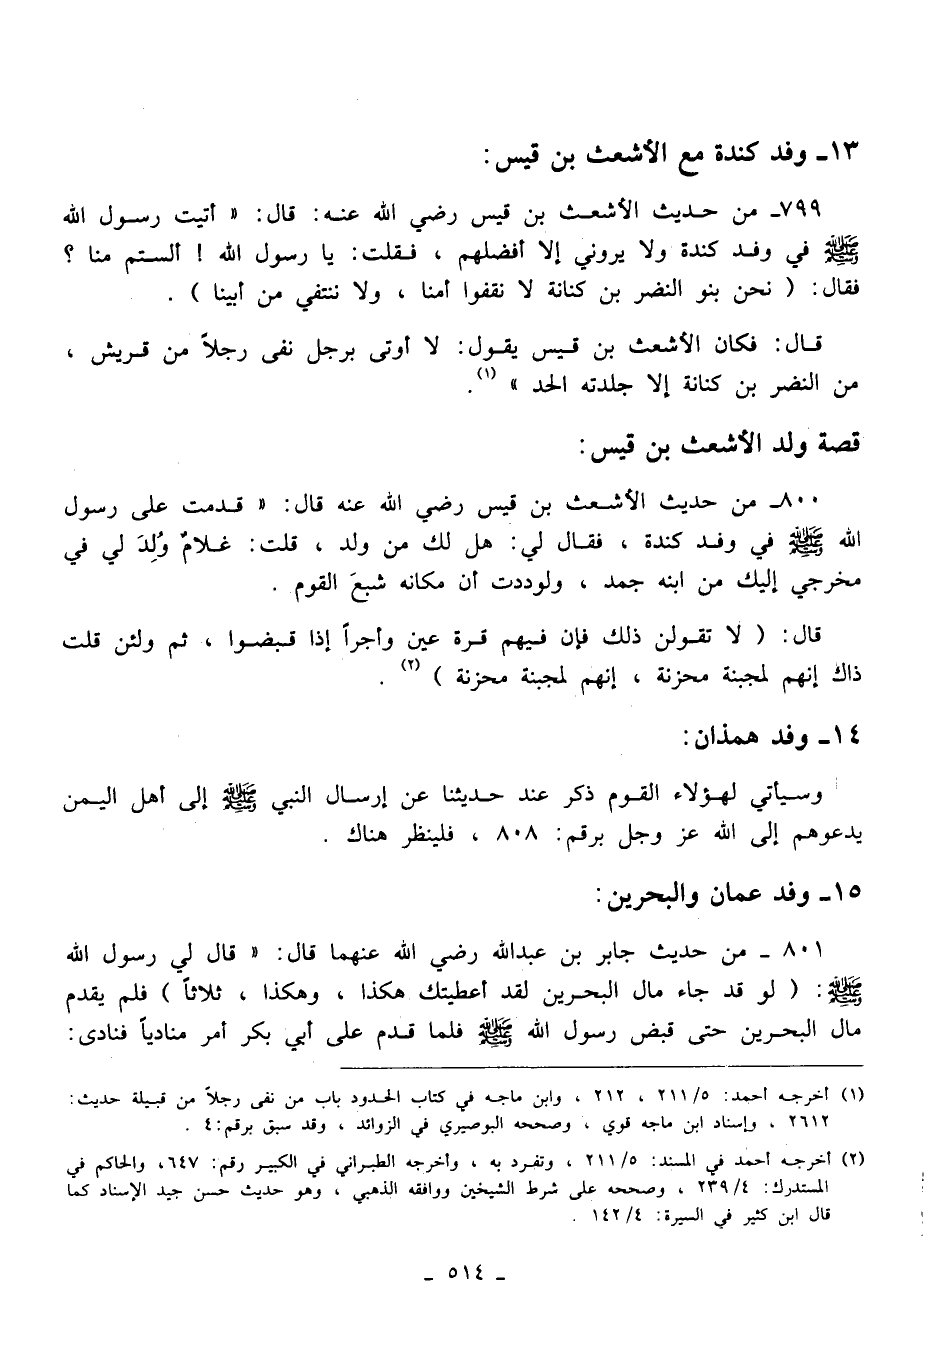 ١٣ـ وفد كندة مع الأشعث بن قيس:
٧٩٩ـ من حديث الأشعث بن قيس رضي الله عنه: قال: « أتيت رسول الله
ﷺ في وفد كندة ولا يروني إلا أفضلهم ، فقلت: يا رسول الله ! ألستم منا ؟
فقال: ( نحن بنو النضر بن كنانة لا نقفوا أمنا ، ولا ننتفي من أبينا ) .
قال: فكان الأشعث بن قيس يقول: لا أوتى برجل نفى رجلاً من قريش ،
من النضر بن كنانة إلا جلدته الحد » (١).
قصة ولد الأشعث بن قيس:
٨٠٠ـ من حديث الأشعث بن قيس رضي الله عنه قال: « قدمت على رسول
الله ﷺ في وفد كندة ، فقال لي: هل لك من ولد ، قلت: غلامٌ وُلِدَ لي في
مخرجي إليك من ابنه جمد ، ولوددت أن مكانه شبعَ القوم .
قال: ( لا تقولن ذلك فإن فيهم قرة عين وأجراً إذا قبضوا ، ثم ولئن قلت
ذاك إنهم لمجبنة محزنة ، إنهم لمجبنة محزنة ) (٢) .
١٤ـ وفد همذان:
وسيأتي لهؤلاء القوم ذكر عند حديثنا عن إرسال النبي ﷺ إلى أهل اليمن
يدعوهم إلى الله عز وجل برقم: ٨٠٨ ، فلينظر هناك .
١٥ـ وفد عمان والبحرين:
٨٠١ ـ من حديث جابر بن عبدالله رضي الله عنهما قال: « قال لي رسول الله
ﷺ: ( لو قد جاء مال البحرين لقد أعطيتك هكذا ، وهكذا ، ثلاثاً ) فلم يقدم
مال البحرين حتى قبض رسول الله ﷺ فلما قدم على أبي بكر أمر منادياً فنادى:
(١) أخرجه أحمد: ٢١١/٥ ، ٢١٢ ، وابن ماجه في كتاب الحدود باب من نفى رجلاً من قبيلة حديث:
٢٦١٢ ، وإسناد ابن ماجه قوي ، وصححه البوصيري في الزوائد ، وقد سبق برقم:٤ .
(٢) أخرجه أحمد في المسند: ٢١١/٥ ، وتفرد به ، وأخرجه الطبراني في الكبير رقم: ٦٤٧، والحاكم في
المستدرك: ٢٣٩/٤ ، وصححه على شرط الشيخين ووافقه الذهبي ، وهو حديث حسن جيد الإسناد كما
قال ابن كثير في السيرة: ١٤٢/٤ .
ـ ٥١٤ ـ